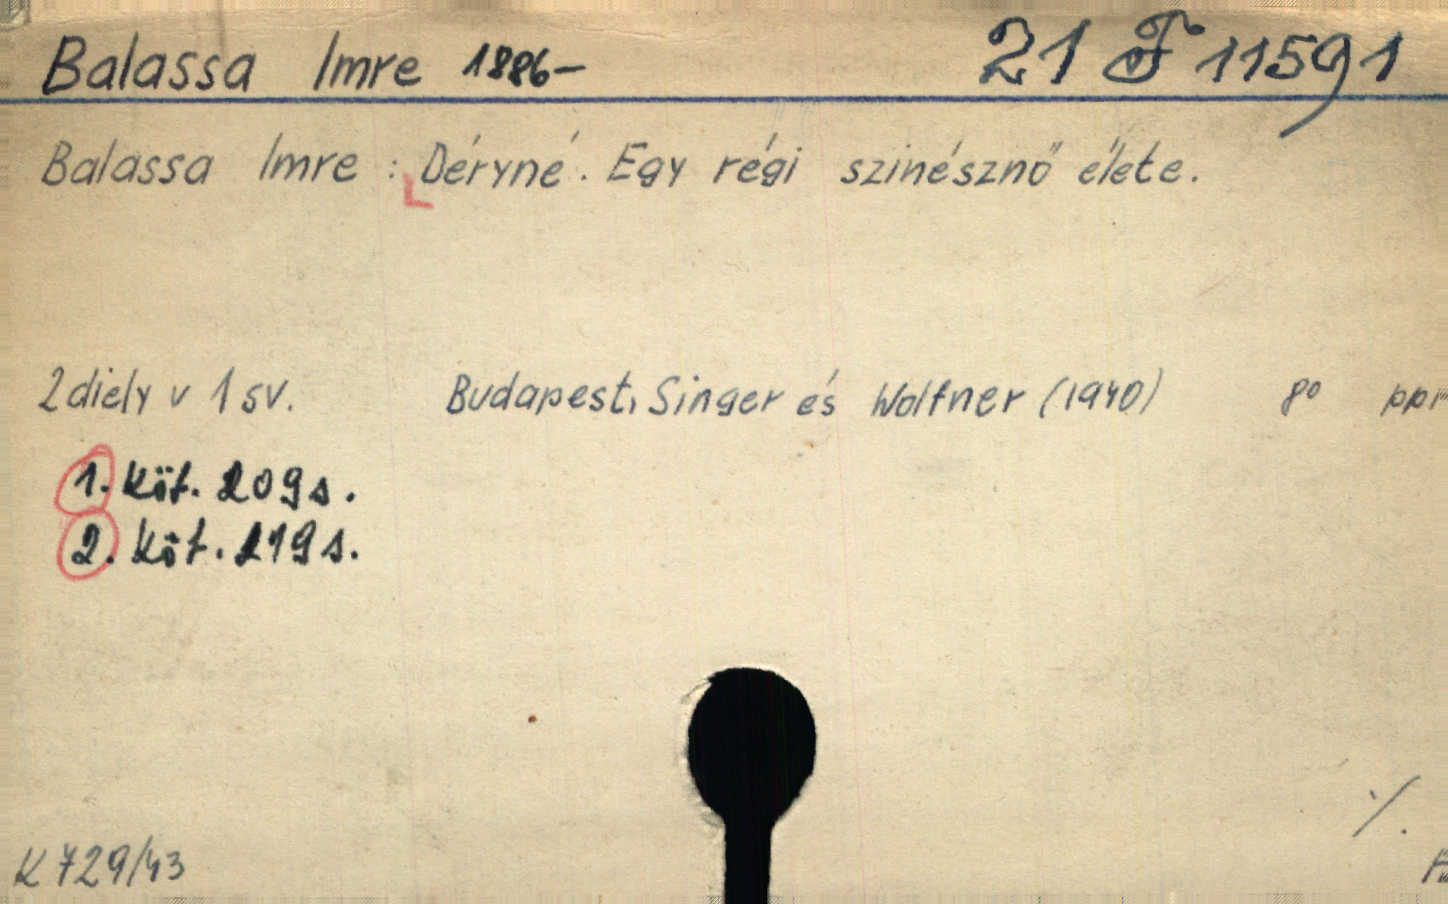 Balassa Imre 1886- 21 F 11591
Balassa Imre: Déryné. Egy régi szinésznő élete.
2 diely v 1 sv. Budapest, Singer és Wolfner (1940) 8°
1. Köt. 209 s.
2. Köt. 219 s.
./.
K 729/43